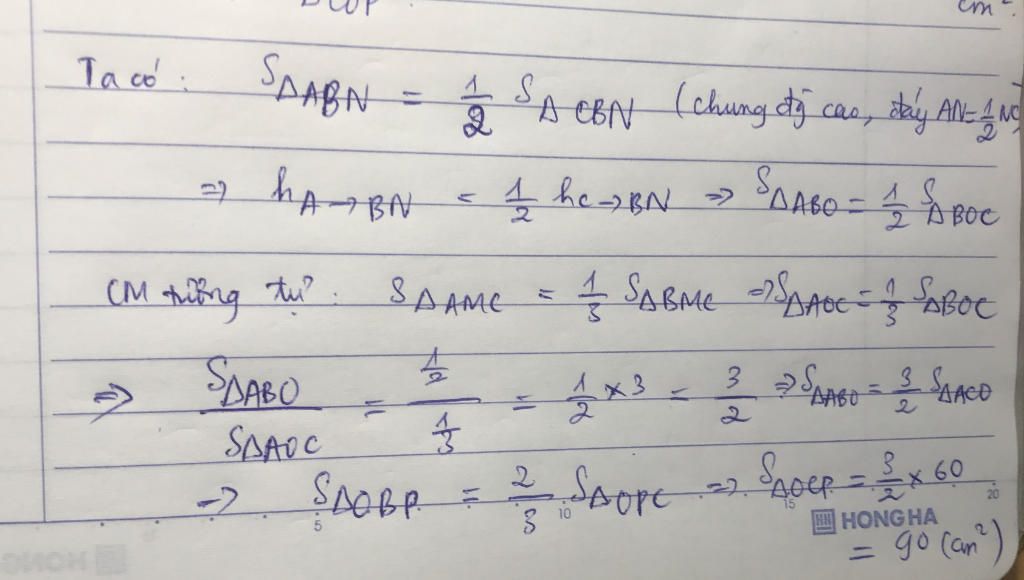 cm².
Ta có: S△ABN = 1/2 S△CBN (chung đg cao, đáy AN = 1/2 NC)
=> hA→BN = 1/2 hC→BN => S△ABO = 1/2 S△BOC
CM tương tự: S△AMC = 1/3 S△BMC => S△AOC = 1/3 S△BOC
=> S△ABO / S△AOC = (1/2) / (1/3) = 1/2 × 3 = 3/2 => S△ABO = 3/2 S△ACO
=> S△OBP = 2/3 S△OPC => S△OCP = 3/2 × 60
5 10 15 20
HH HONG HA
= 90 (cm²)